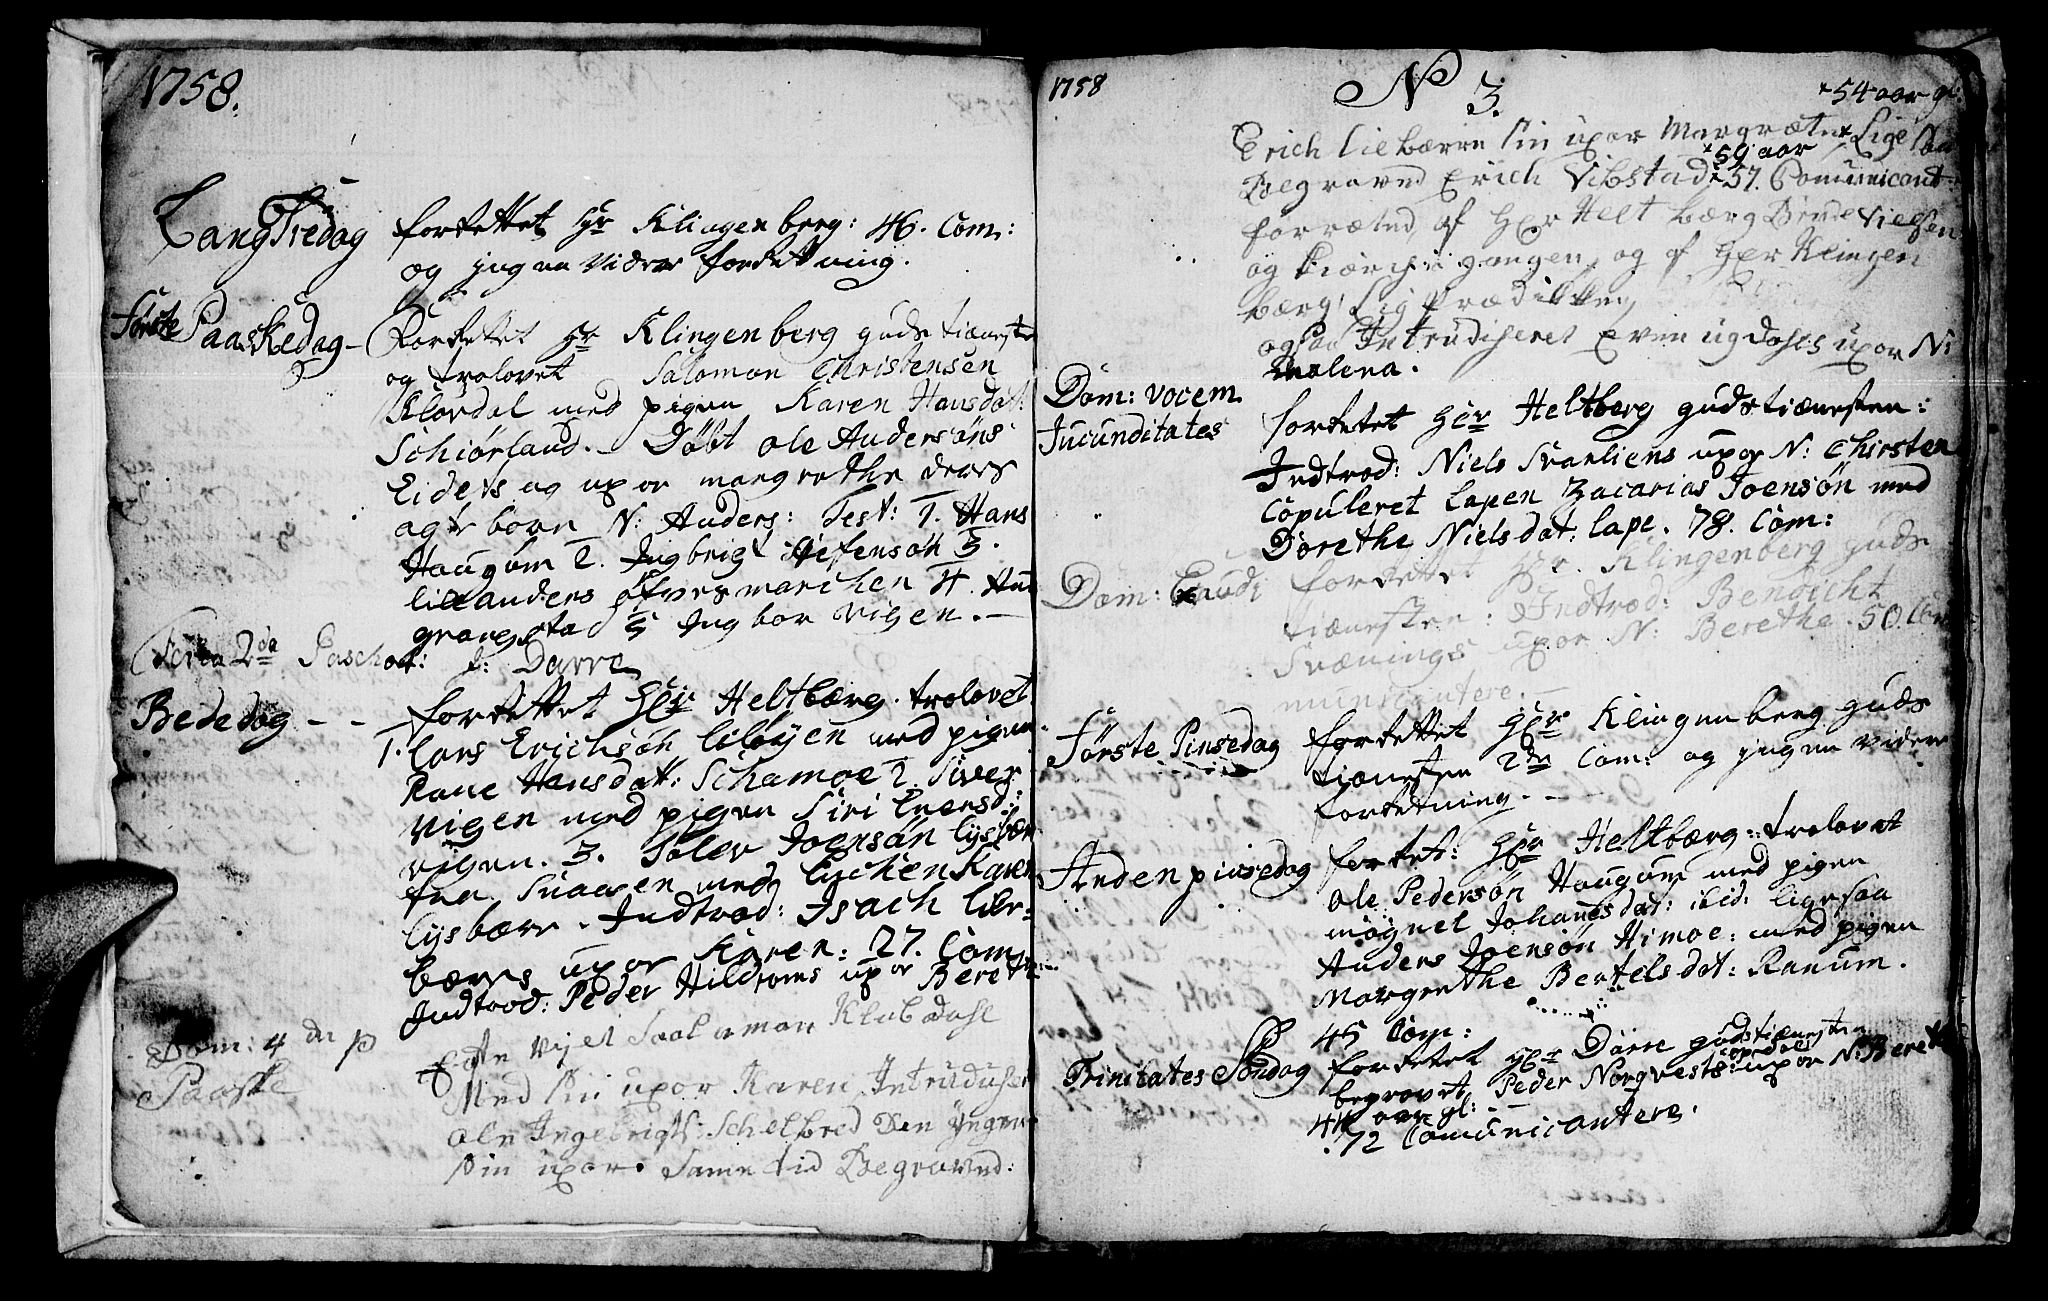 1758.
Lang Fredag forrettet Hr Klingenberg: 46. Com:
og ingen videre forrettning.
Første Paaskedag - Forrettet Hr Klingenberg gudstienesten
og trolovet Salomon Christensen
Klovdal med pigen Karen Hansdatt:
Schiørland. Døbt ole Andersøns
Eidets og uxor margrethe deres
barn N: Anders: Test: 1. Hans
Haugum 2. Ingbrigt 3.
lille anders øfvermarchen 4.
grangstad 5 Ingbor vigen. -
Feria 2da Paschat: d: Darre
Bededag - - - forrettet Hr Heltbærg. trolovet
1. Lars Erichsøn med pigen
Hansdatt: Schamoe 2. Siver
vigen med pigen Siri Enersd:
vigen. 3. Tolev Joensøn Lysbær
fra Snaasen med Karen
Lysbærr. Indtrod: Isach
bærrs uxor Karen: 27. Com
Indtrod: Peder Hildroms uxor Bereth
Dom: 4 de p
Paaske
Saalaman Klubdahl
Med Sin uxor Karen Intruduser
ole Ingebrigts: Schelbred Den yngre
Sin uxor. Same tid Begraved:
1758
N 3.
54 aar gl:
Erich Liebærre Sin uxor Margræte Lige Saa
59 aar
Begraved Erich Vibstad 57. Comunicant
forræted af Hr Heltbærg
og af Hr Klingen
bærg Ligprædikken,
ogsaa Intrudiseret uxor N:
Malena.
Dom: vocem
Jucunditates
forretet Hr Heltberg gudstienesten:
Indtrod: Niels Svarliens uxor N: Chirsten
Copuleret lapen Zacarias Joensøn med
Dorethe Nielsdat: lape. 78. Com:
Dom: Exaudi forrettet Hr. Klingenberg guds
tienesten: Indtrod: Bendicht
Svænings uxor N: Berethe. 50 Com
municantere. -
Første Pinsedag forrettet Hr Klingenberg guds
tienesten Com: og ingen videre
forretning. -
Anden pinsedag forret: Hr Heltbærg: trolovet
ole Pedersøn Haugum med pigen
møgnel Johanesdat: ibid: ligesaa
Anders Joensøn Himoe: med pigen
Margrethe Bertelsdat: Ranum.
45 Com:
Trinitates Søndag forretet Hr Darre gudstienesten
begravet Peder Norqvests: opdals uxor N: Bereth
44 aar gl:
72 Comunicantere.